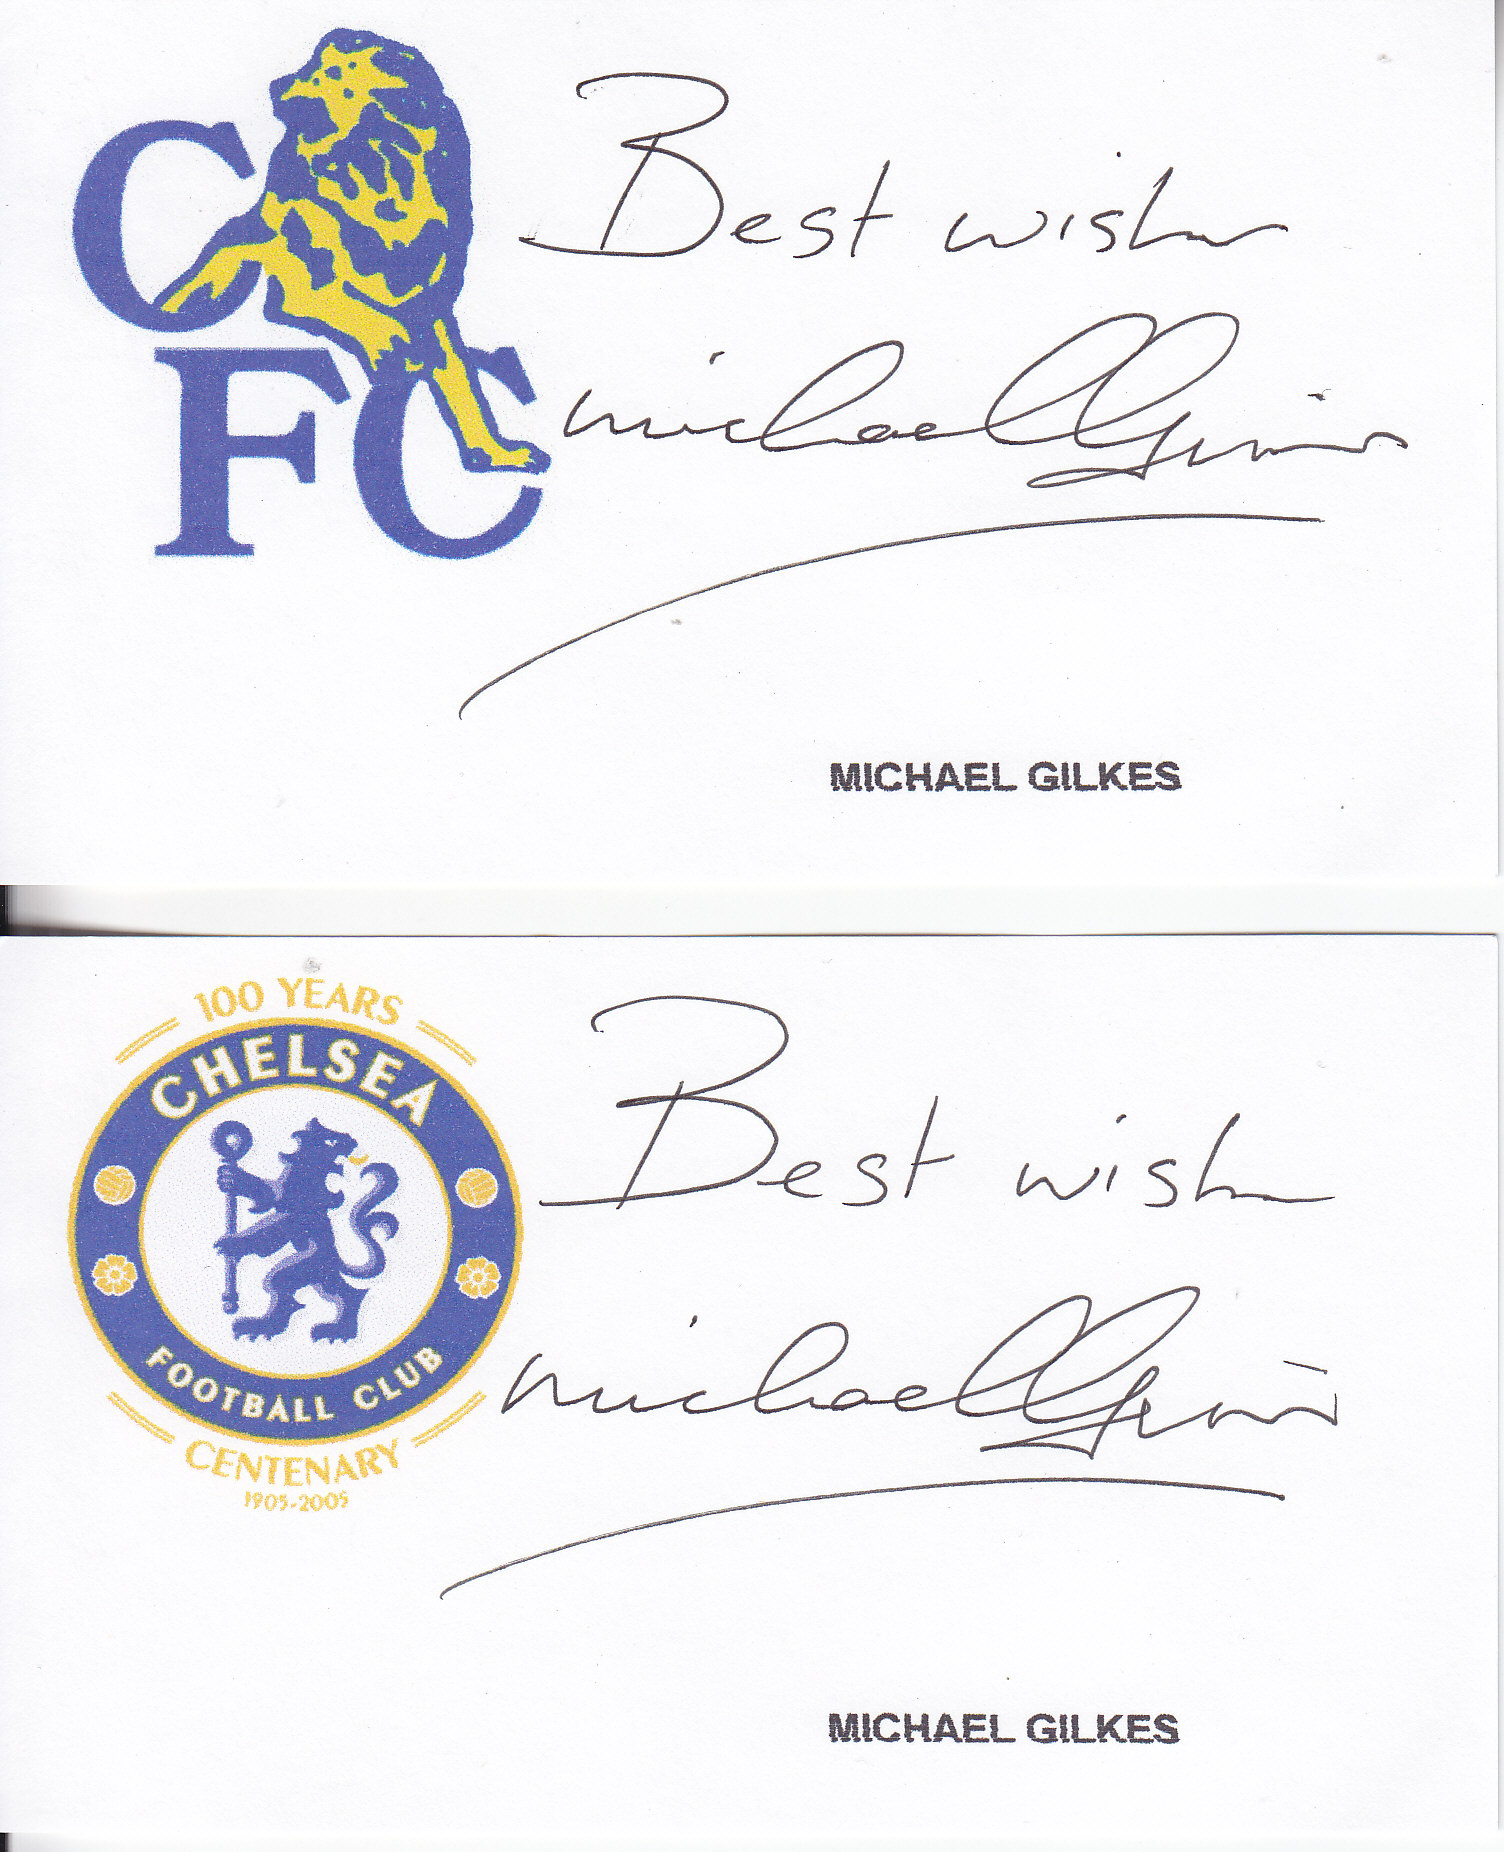 CFC
Best wishes
Michael Gilkes
MICHAEL GILKES
100 YEARS
CHELSEA
FOOTBALL CLUB
CENTENARY
1905-2005
Best wishes
Michael Gilkes
MICHAEL GILKES